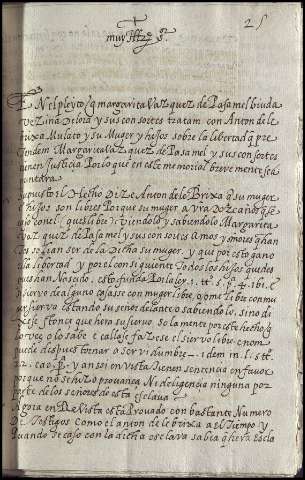 25
muy Ille. sor.
En el pleyto q̃ margarita vazquez de Pasamel biuda
vezina de loxa y sus consortes tratan con Anton de le
brixa Mulato y su Muger y hijos sobre la libertad q̃ pre
tendem Margarita vazquez de Pasamel y sus consortes
tienen Justicia Por lo que en este memorial breve mente se a
puntara
Supuesto el Hecho dize Anton de le Brixa q̃ su muger
e hijos son libres Porque su muger a
con el queslibre viendolo y sabiendolo Margarita
vazquez de Pasamel y sus consortes Amos y señores q̃ han
sido y solian ser de la Dicha su muger y que por esto gano
la libertad y por el consiguiente Todos los hijos quedes
pues han Nascido esto funda Por la ley
o siervo de alguno casasse con muger libre, o ome libre con mu
ger sierva estando su señor delante o sabiendolo, si no di
xese estonce que hera su siervo solamente por este hecho q̃
lo vee o lo sabe e callase fazese el siervo libre, e nom
puede despues tornar a servidumbre idem in l. j. tt.
22. y ansi en vista tienen sentencia en favor
porque no se hizo provança Ni deligencia ninguna por
parte de los señores de esta esclava
Agora en Revista esta Provado con bastante Numero
De Testigos Como el anton de lebrixa a el Tiempo y
Quando se caso con la dicha esclava sabia q̃ hera escla